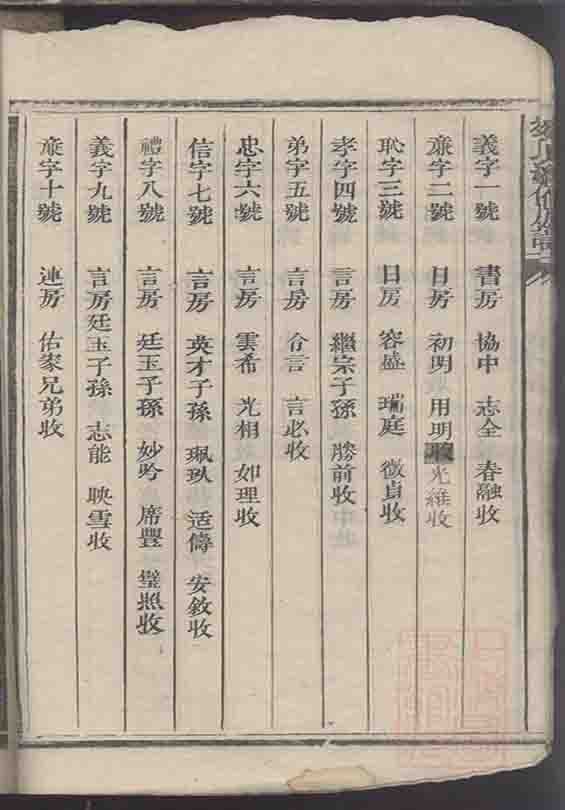 義字一號 書房 協中 志全 春融收
廉字二號 日房 初明 用明 光維收
恥字三號 日房 容盛 瑞庭 徵貞收
孝字四號 言房 繼宗子孫 勝前收
弟字五號 言房 令言 言必收
忠字六號 言房 雲希 光相 如理收
信字七號 言房 英才子孫 珮玖 适儔 安敘收
禮字八號 言房 廷玉子孫 妙吟 席豐 璧照收
義字九號 言房廷玉子孫 志能 映雪收
廉字十號 連房 佑家兄弟收